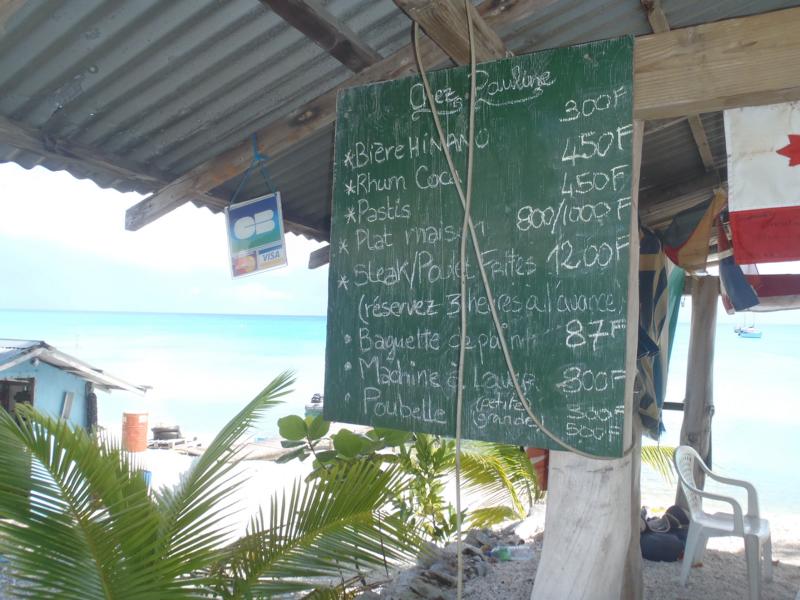 Chez Pauline
*Bière HINANO 300F
*Rhum Coca 450F
*Pastis 450F
*Plat maison 800/1000F
*Steak/Poulet Frites 1200F
(réservez 3 heures à l'avance)
• Baguette de pain 87F
• Machine à Laver 800F
• Poubelle (petite 300F
(grande 500F
CB
VISA